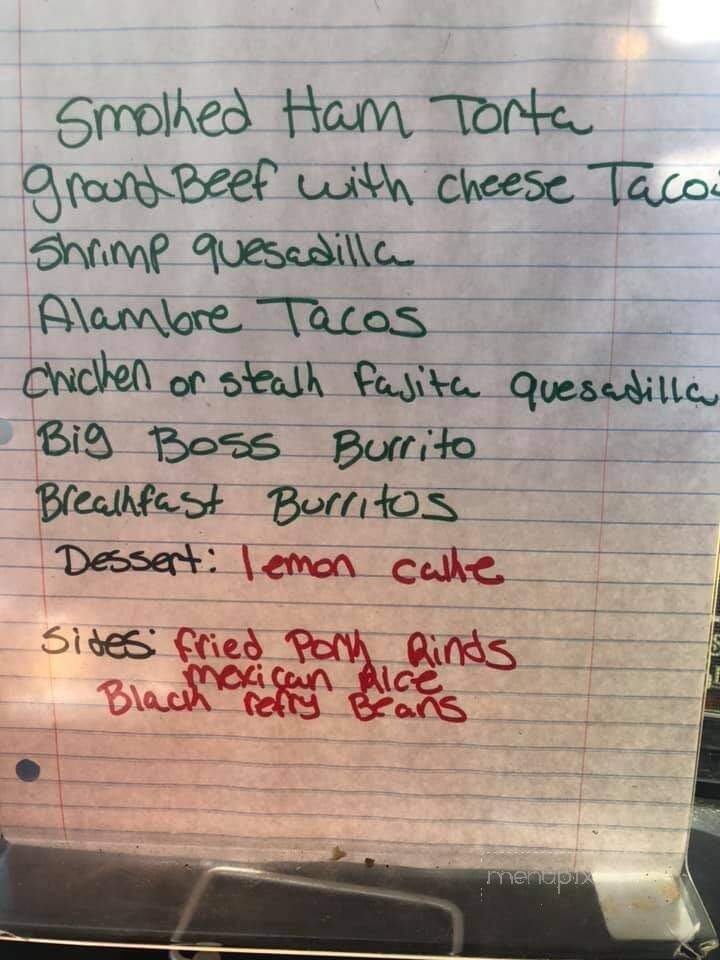 Smoked Ham Torta
ground Beef with cheese Tacos
Shrimp quesadilla
Alambre Tacos
Chicken or steak fajita quesadilla
Big Boss Burrito
Breakfast Burritos
Dessert: lemon cake
Sides: fried Pork Rinds
mexican Rice
Black refry Beans
menupix